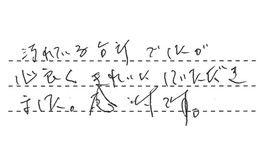 汚れている台所でしたが
心良くきれいにしていただき
ました。感謝です。